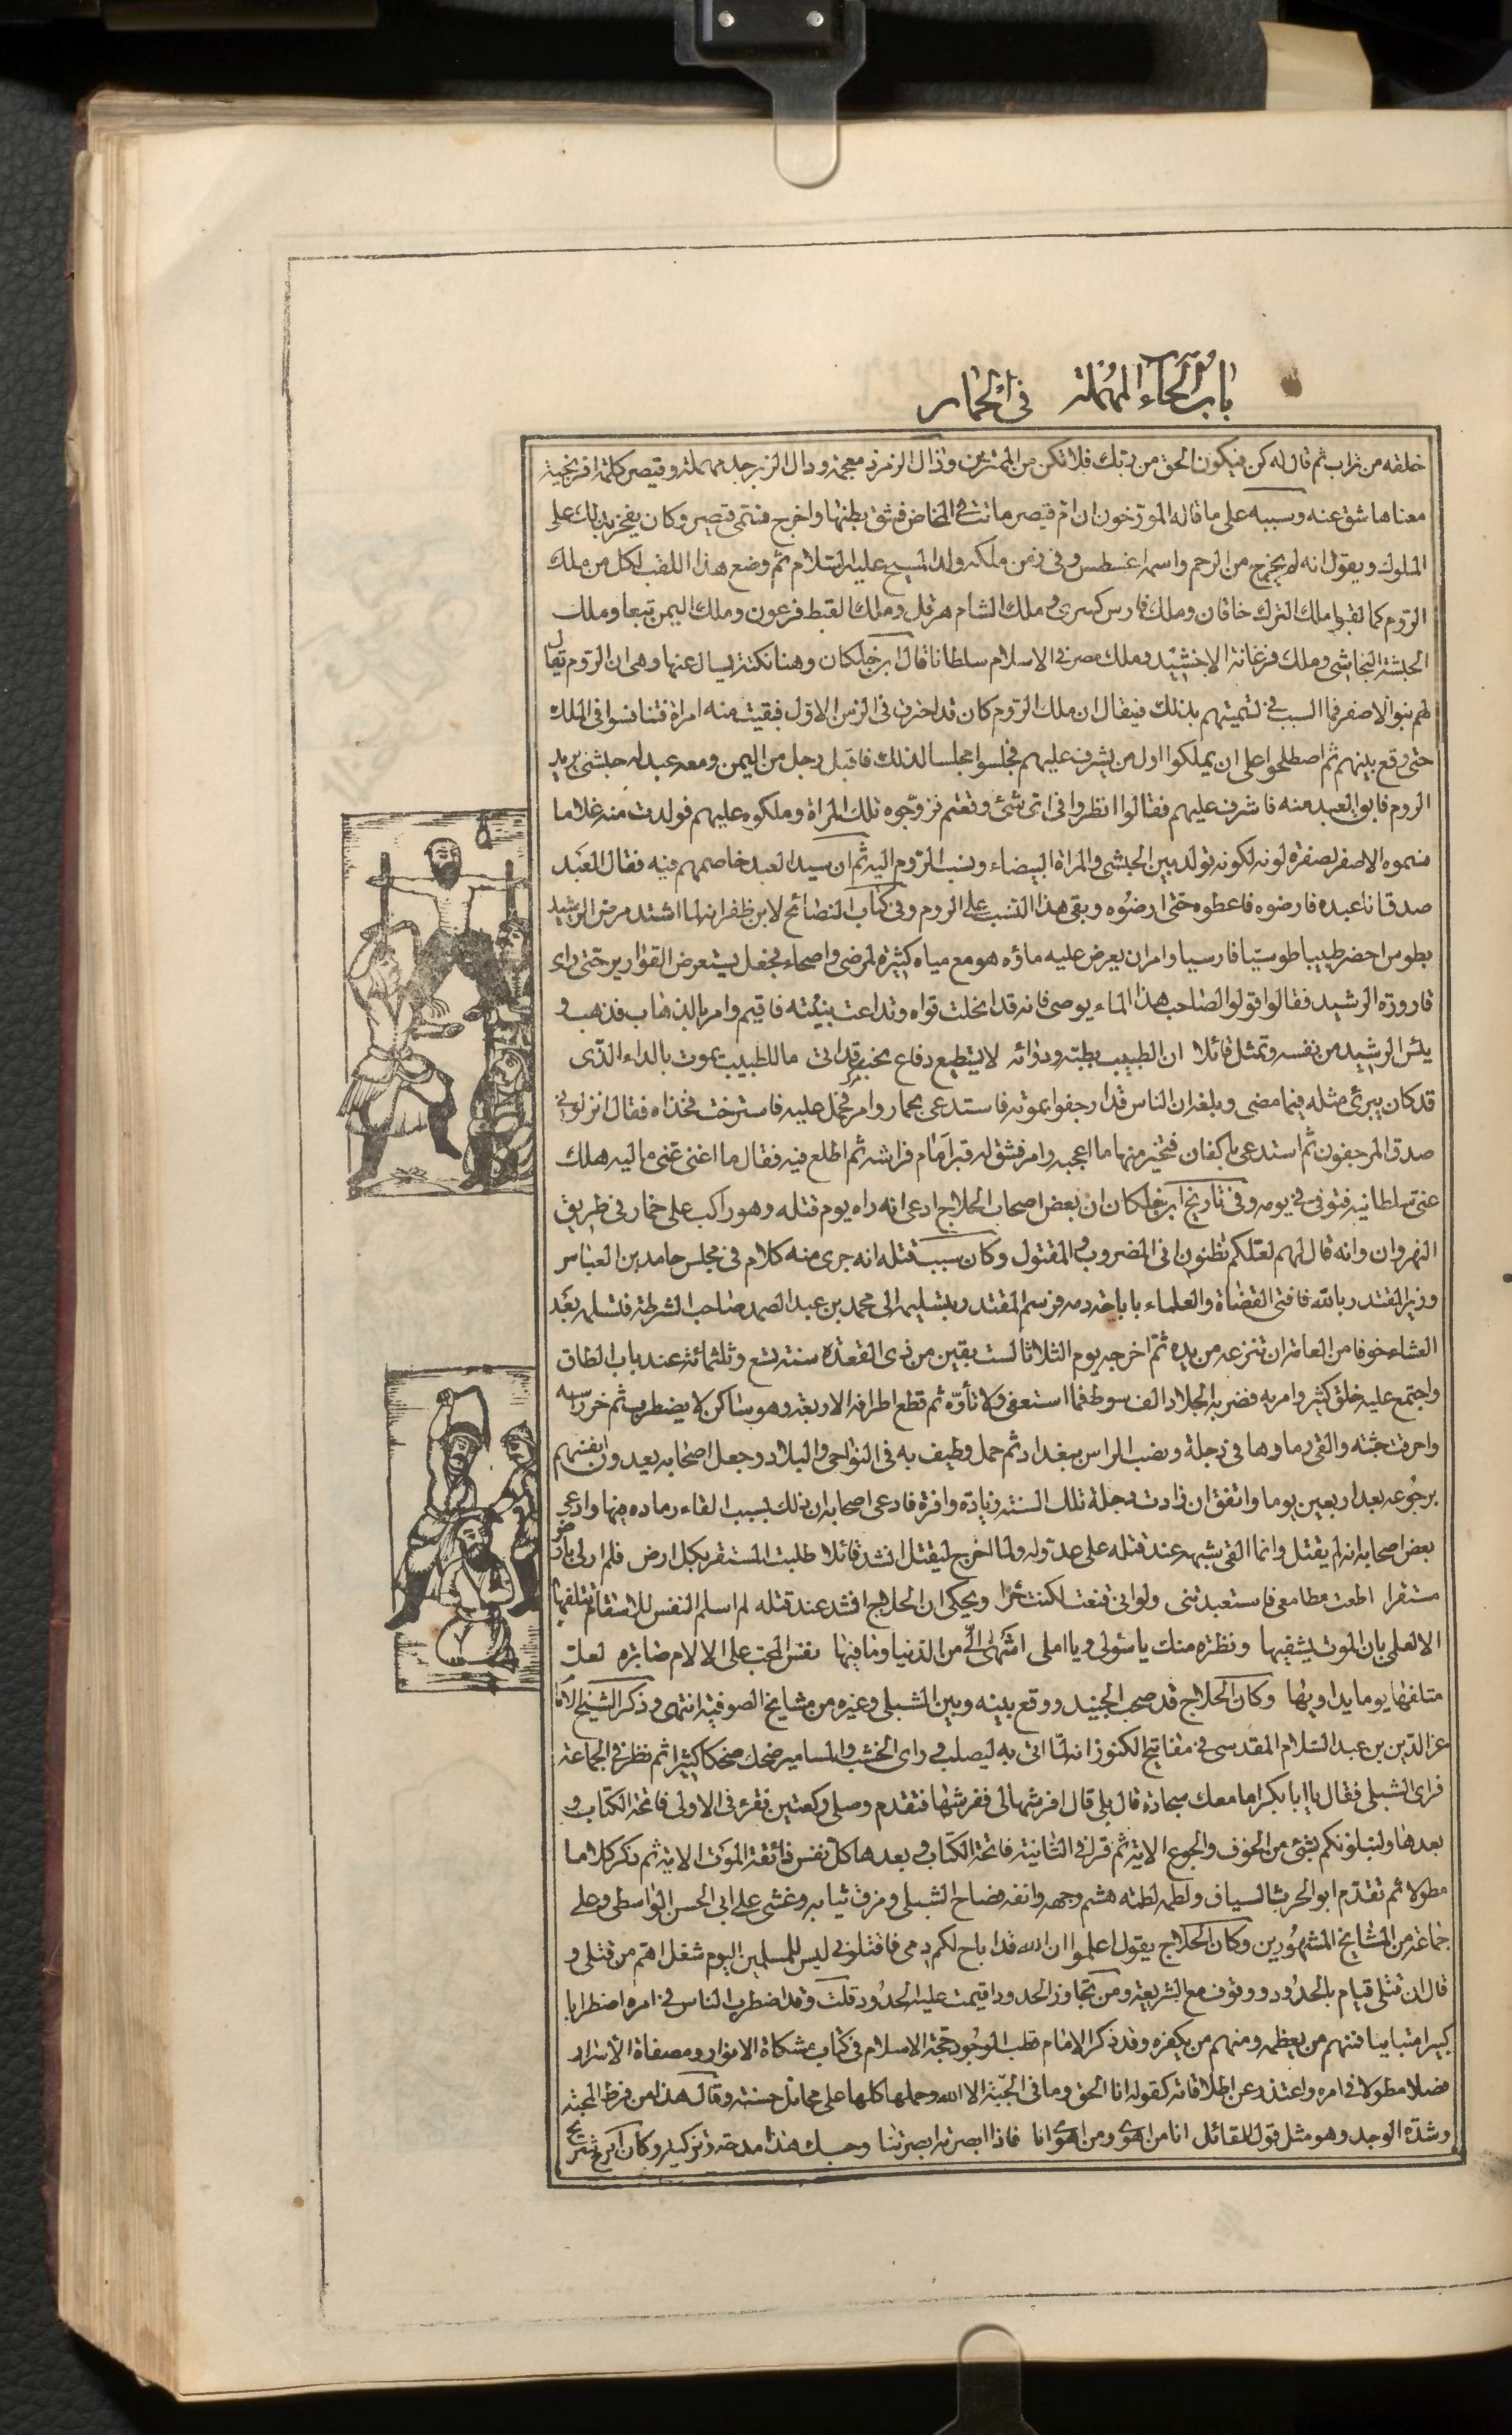 باب الحاء المهملة في الحمار
خلقه من تراب ثم قال له كن فيكون الحق من ربك فلا تكن من الممترين وذال الزمرذ معجمة ودال الزبرجد مهملة وقيصر كلمة افرنجية
معناها شق عنه وسببه على ما قاله المورخون ان ام قيصر ماتت في المخاض فشق بطنها واخرج فتسمى قيصر وكان يفخر بذلك على
الملوك ويقول انه لم يخرج من الرحم واسمه اغسطس وفي زمن ملكه ولد المسيح عليه السلام ثم وضع هذا اللقب لكل من ملك
الروم كما لقبوا ملك الترك خاقان وملك فارس كسرى وملك الشام هرقل وملك القبط فرعون وملك اليمن تبعا وملك
الحبشة النجاشي وملك فرغانة الاخشيد وملك مصر في الاسلام سلطانا قال ابن خلكان وهنا نكتة يسال عنها وهى ان الروم يقال
لهم بنوا الاصفر فما السبب في تسميتهم بذلك فيقال ان ملك الروم كان قد احترق في الزمن الاول فبقيت منه امراة فتنافسوا في الملك
حتى وقع بينهم ثم اصطلحوا على ان يملكوا اول من يشرف عليهم فجلسوا مجلسا لذلك فاقبل رجل من اليمن ومعه عبد له حبشى يريد
الروم فابق العبد منه فاشرف عليهم فقالوا انظروا في اى شئ وقعتم فزوجوه تلك المراة وملكوه عليهم فولدت منه غلاما
فسموه الاصفر لصفرة لونه لكونه تولد بين الحبشى والمراة البيضاء ونسب الروم اليه ثم ان سيد العبد خاصمهم فيه فقال العبد
صدق انا عبده فارضوه فاعطوه حتى ارضوه وبقى هذا النسب على الروم وفي كتاب النصائح لابن ظفر انه لما اشتد مرض الرشيد
بطوس احضر طبيبا طوسيا فارسيا وامر ان يعرض عليه ماؤه هو مع مياه كثيرة لمرضى واصحاء فجعل يستعرض القوارير حتى راى
قارورة الرشيد فقالوا قولوا لصاحب هذا الماء يوصى فانه قد انحلت قواه وتداعت بنيته فاقيم وامر بالذهاب فذهب و
يئس الرشيد من نفسه وتمثل قائلا ان الطبيب بطبه ودوائه لا يستطيع دفاع نحب قد اتى ما للطبيب يموت بالداء الذى
قد كان يبرئ مثله فيما مضى وبلغه ان الناس قد ارجفوا بموته فاستدعى بحمار وامر فحمل عليه فاسترخت فخذاه فقال انزلونى
صدق المرجفون ثم استدعى باكفان فتخير منها ما اعجبه وامر فشق له قبر امام فراشه ثم اطلع فيه فقال ما اغنى عنى ماليه هلك
عنى سلطانيه فتوفى في يومه وفي تاريخ ابن خلكان ان بعض اصحاب الحلاج ادعى انه راه يوم قتله وهو راكب على حمار في طريق
النهروان وانه قال لهم لعلكم تظنون انى المضروب والمقتول وكان سبب قتله انه جرى منه كلام في مجلس حامد بن العباس
وزير المقتدر بالله فافتى القضاة والعلماء باباحة دمه فرسم المقتدر بتسليمه الى محمد بن عبد الصمد صاحب الشرطة فتسلمه بعد
العشاء خوفا من العامة ان تنزعه من يده ثم اخرجه يوم الثلاثا لست بقين من ذى القعدة سنة تسع وثلثمائة عند باب الطاق
واجتمع عليه خلق كثير وامر به فضربه الجلاد الف سوط فما استعفى ولا تأوه ثم قطع اطرافه الاربعة وهو ساكن لا يضطرب ثم حز راسه
واحرقت جثته والقى رمادها في دجلة ونصب الراس ببغداد ثم حمل وطيف به في النواحى والبلاد وجعل اصحابه يعدون انفسهم
برجوعه بعد اربعين يوما واتفق ان زادت دجلة تلك السنة زيادة وافرة فادعى اصحابه ان ذلك بسبب القاء رماده فيها وادعى
بعض اصحابه انه لم يقتل وانما القى شبهه عند قتله على عدو له ولما اخرج ليقتل انشد قائلا طلبت المستقر بكل ارض فلم ار لى بارض
مستقرا اطعت مطامعى فاستعبدتنى ولو انى قنعت لكنت حرا ويحكى ان الحلاج انشد عند قتله لم اسلم النفس للاسقام تتلفها
الا لعلمى بان الموت يشفيها ونظرة منك يا سؤلى ويا املى اشهى الى من الدنيا وما فيها نفس المحب على الالام صابرة لعل
متلفها يوما يداويها وكان الحلاج قد صحب الجنيد ووقع بينه وبين الشبلى وغيره من مشايخ الصوفية انتهى وذكر الشيخ الامام
عز الدين بن عبد السلام المقدسى في مفاتيح الكنوز انه لما اتى به ليصلب وراى الخشب والمسامير ضحك ضحكا كثيرا ثم نظر في الجماعة
فراى الشبلى فقال يا ابا بكر اما معك سجادة قال بلى قال افرشها لى ففرشها فتقدم وصلى ركعتين فقرء في الاولى فاتحة الكتاب و
بعدها ولنبلونكم بشئ من الخوف والجوع الاية ثم قرا في الثانية فاتحة الكتاب وبعدها كل نفس ذائقة الموت الاية ثم ذكر كلاما
مطولا ثم تقدم ابو الحرث السياف ولطمه لطمة هشم وجهه وانفه فصاح الشبلى ومزق ثيابه وغشى على ابى الحسن الواسطى وعلى
جماعة من المشايخ المشهورين وكان الحلاج يقول اعلموا ان الله قد اباح لكم دمى فاقتلونى ليس للمسلمين اليوم شغل اهم من قتلى و
قال ان قتلى قيام بالحدود ووقوف مع الشريعة ومن تجاوز الحدود اقيمت عليه الحدود قلت وقد اضطرب الناس في امره اضطرابا
كبيرا متباينا فمنهم من يعظمه ومنهم من يكفره وقد ذكر الامام قطب الوجود حجة الاسلام في كتاب مشكاة الانوار ومصفاة الاسرار
فصلا مطولا في امره واعتذر عن اطلاقاته كقوله انا الحق وما في الجبة الا الله وحملها كلها على محامل حسنة وقال هذا من فرط المحبة
وشدة الوجد وهو مثل قول القائل انا من اهوى ومن اهوى انا فاذا ابصرته ابصرتنا وحسبك هذا مدحة وتزكية وكان ابن شريح